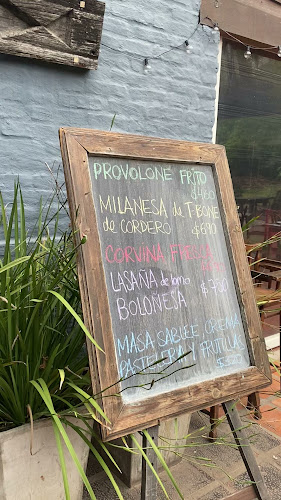 PROVOLONE FRITO
$460
MILANESA de T-BONE
de CORDERO $670
CORVINA
LASAÑA de lomo
BOLOÑESA
MASA SABLEE CREMA
PASTELERA y FRUTILLAS